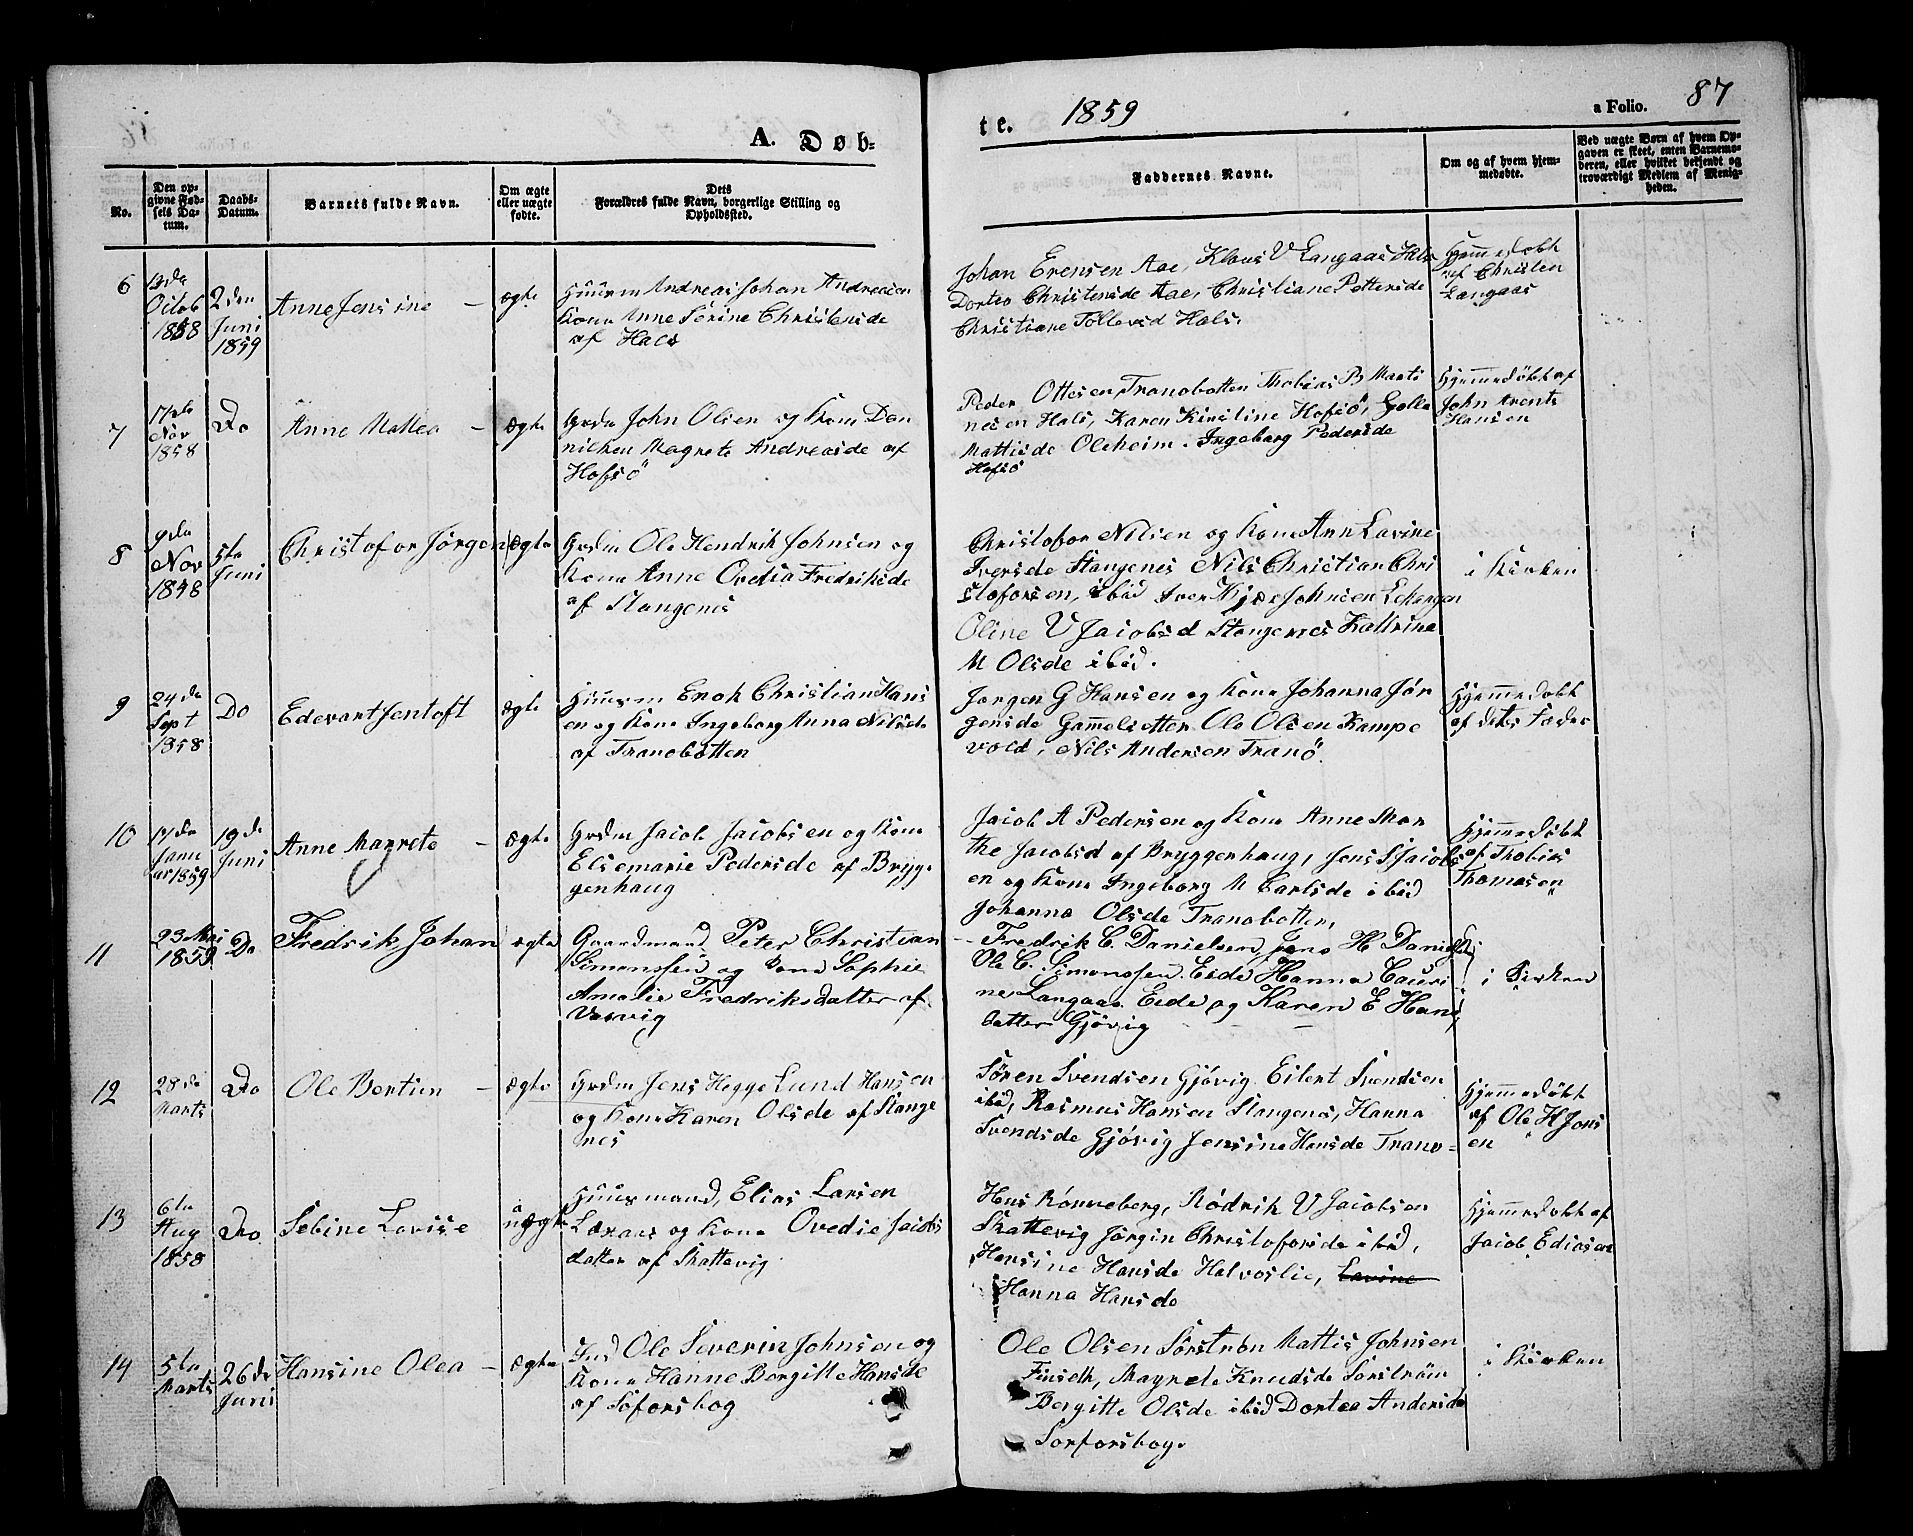 A. Døb-
te. 1859
a Folio. 87
No.
Den op-
givne Fød-
sels Da-
tum.
Daabs-
Datum.
Barnets fulde Navn.
Om ægte
eller uægte
fødte.
Dets
Forældres fulde Navn, borgerlige Stilling og
Opholdssted.
Faddernes Navne.
Om og af hvem hjem-
medøbte.
Ved uægte Børn af hvem Op-
gaven er skeet, enten Barnemo-
deren, eller hvilket bekjendt og
troværdigt Medlem af Menig-
heden.
6
Octob
1858
2den
Juni
1859
Anne Jensine -
ægte
Huusm Andreas Johan Andreasen
Kone Anne Serine Christensde
af Hals
Johan Erensen Aae, Klaus V Langaas Hals
Dortea Christensde Aae, Christiane Pettersde
Christiane Tollevsd Hals.
Hjemmedøbt
af Christen
Langaas
7
17de
Nov
1858
Do
Anne Mattea -
ægte
Grdm John Olsen og Kone Dan
nilken Magrete Andreasde af
Hofsö
Peder Ottesen Tranobotten Thobias B Marti
nesen Hals, Karen Kirstine Hofsö,
Mattisde Oleheim. Ingeborg Pedersde
Hofsö
Hjemmedøbt af
John Arents
Hansen
8
9de
Nov
1848
5te
Juni
Christofor Jørgen
ægte
Grdm Ole Hendrik Johnsen og
Kone Anne Ovedia Fredriksde
af Stangenes
Christofor Nilsen og Kone Ann Lavine
Iversde Stangenes Nils Christian Chri
stoforsen, ibid Iver Kjær Johnsen Lekangen
Oline V Jacobsd Stangenes Kattrina
M Olsde ibid.
i Kirken
9
24de
Sept
1858
Do
Edevart Jentoft
ægte
Huusm Enok Christian Hans
en og Kone Ingeborg Anna Nilsde
af Tranobotten
Jørgen G Hansen og Kone Johanna Jør
gensde Gammelsetter Ole Olsen Kampe
vold, Nils Andersen Tranö.
Hjemmedøbt
af dets Fader
10
17de
Janu
ar 1859
19de
Juni
Anne Magrete -
ægte
Grdm Jacob Jacobsen og Kone
Elsemarie Pedersde af Bryg-
genhaug
Jacob A Pedersen og Kone Anne Mar
the Jacobsd af Bryggenhaug, Jens S Jacobs
en og Kone Ingeborg M Carlsde ibid
Johanna Olsde Tranobotten,
Hjemmedøbt
af Thobias
Thomasen
11
23 Mai
1859
Do
Fredrik Johan
ægte
Gaardmand Peter Christian
Simonssen og Kone Sophie
Amalie Fredriksdatter af
Vasvig
- Fredrik C. Danielsen, Jens H Daniels
Ole C. Simonssen Eide Hanna Lauri
ne Langaas Eide og Karen E Hans
datter Gjövig
i Kirken
12
28de
Marts
Do
Ole Bertin -
ægte
Grdm Jens Hegge Lund Hansen
og Kone Karen Olsde af Stange
nes
Søren Svendsen Gjövig Eilert Svendsen
ibid, Rasmus Hansen Stangenes, Hanna
Svendsde Gjövig Jensine Hansde Tranø-
Hjemmedøbt
af Ole H Jons
en
13
6te
Aug
1858
Do
Sebine Lovise
uægte
Huusmand, Elias Larsen
og Kone Ovedie Jacobs
datter af Skattevig
Hans Rønneberg, Rødrik V Jacobsen
Skattevig Jørgin Christoforsde ibid,
Hansine Hansde Halvoslie, Lavine
Hanna Hansde
Hjemmedøbt af
Jacob Ediasen
14
5te
Marts
26de
Juni
Hansine Olea -
ægte
Ind Ole Severin Johnsen og
Kone Hanne Bergitte Hansde
af Söforsbog
Ole Olsen Sørstrøm Mattis Johnsen
Finseth, Magrete Knudsde Sørström
Bergitte Olsde ibid Dortea Andersde
Sorforsbog.
i Kirken